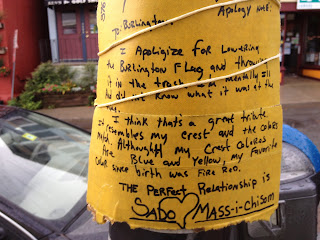 Apology Note.
To: Burlington.
I Apoligize for Lowering
the Burlington Flag and throwing
it in the trash I'm mentally ill
and didn't know what it was at the
time.
I think thats a great tribute.
It resembles my crest and the colors
Although my Crest Colores
Are Blue and Yellow, my Favorite
Color since birth was Fire Red.
THE PERFECT Relationship is
SADO MASS-i-chisom